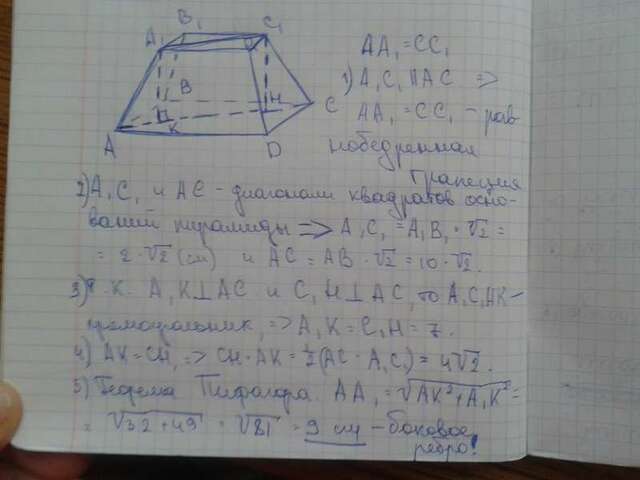 B₁ C₁
A₁
B H
K C
A D
AA₁ = CC₁
1) A₁C₁ || AC =>
AA₁ = CC₁ – рав-
нобедренная
трапеция
2) A₁C₁ и AC – диагонали квадратов осно-
ваний пирамиды => A₁C₁ = A₁B₁ · √2 =
= 2 · √2 (см) и AC = AB · √2 = 10 · √2.
3) K. A₁K ⊥ AC и C₁H ⊥ AC, то A₁C₁HK –
прямоугольник, => A₁K = C₁H = 7.
4) AK = CH, => CH = AK = ½ (AC - A₁C₁) = 4√2.
5) Теорема Пифагора. AA₁ = √AK² + A₁K² =
= √32 + 49 = √81 = 9 см – боковое
ребро!